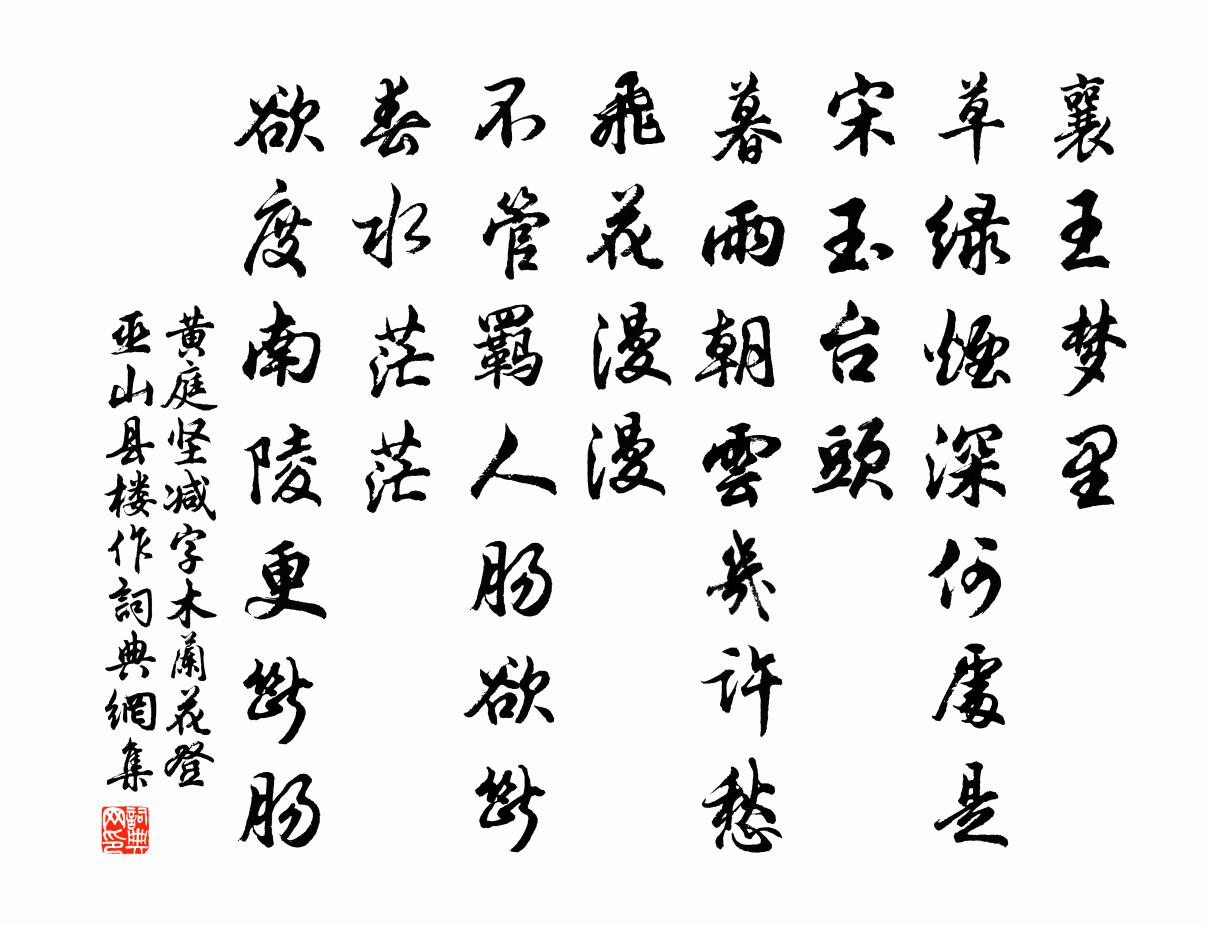 襄王梦里
草绿烟深何處是
宋玉台頭
暮雨朝雲幾许愁
飛花漫漫
不管羁人肠欲斷
春水茫茫
欲度南陵更斷肠
黄庭坚减字木蘭花登
巫山县楼作詞典網集
詞典网印